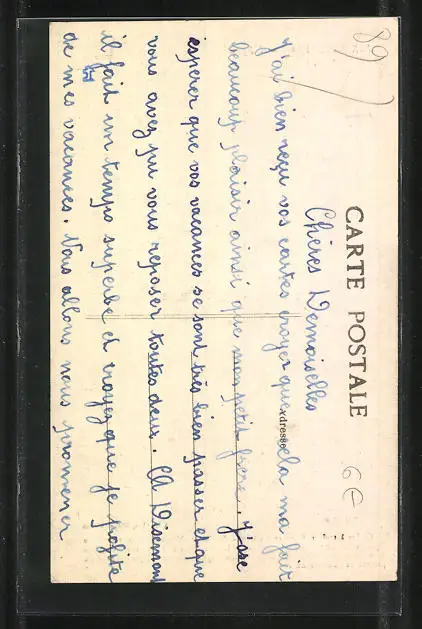 89
CARTE POSTALE
6€
Adresse
Chères Demoiselles
J'ai bien reçu vos cartes croyez que cela ma fait
beaucoup plaisir ainsi que mon petit frère. J'ose
esperer que vos vacances se sont très bien passer et que
vous avez pu vous reposer toutes deux. A Disemont
il fait un temps superbe et croyez que je profite
de mes vacances. Nous allons nous promener